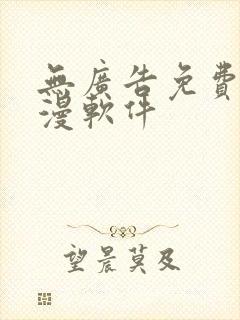 無廣告免費
漫軟件
望晨莫及